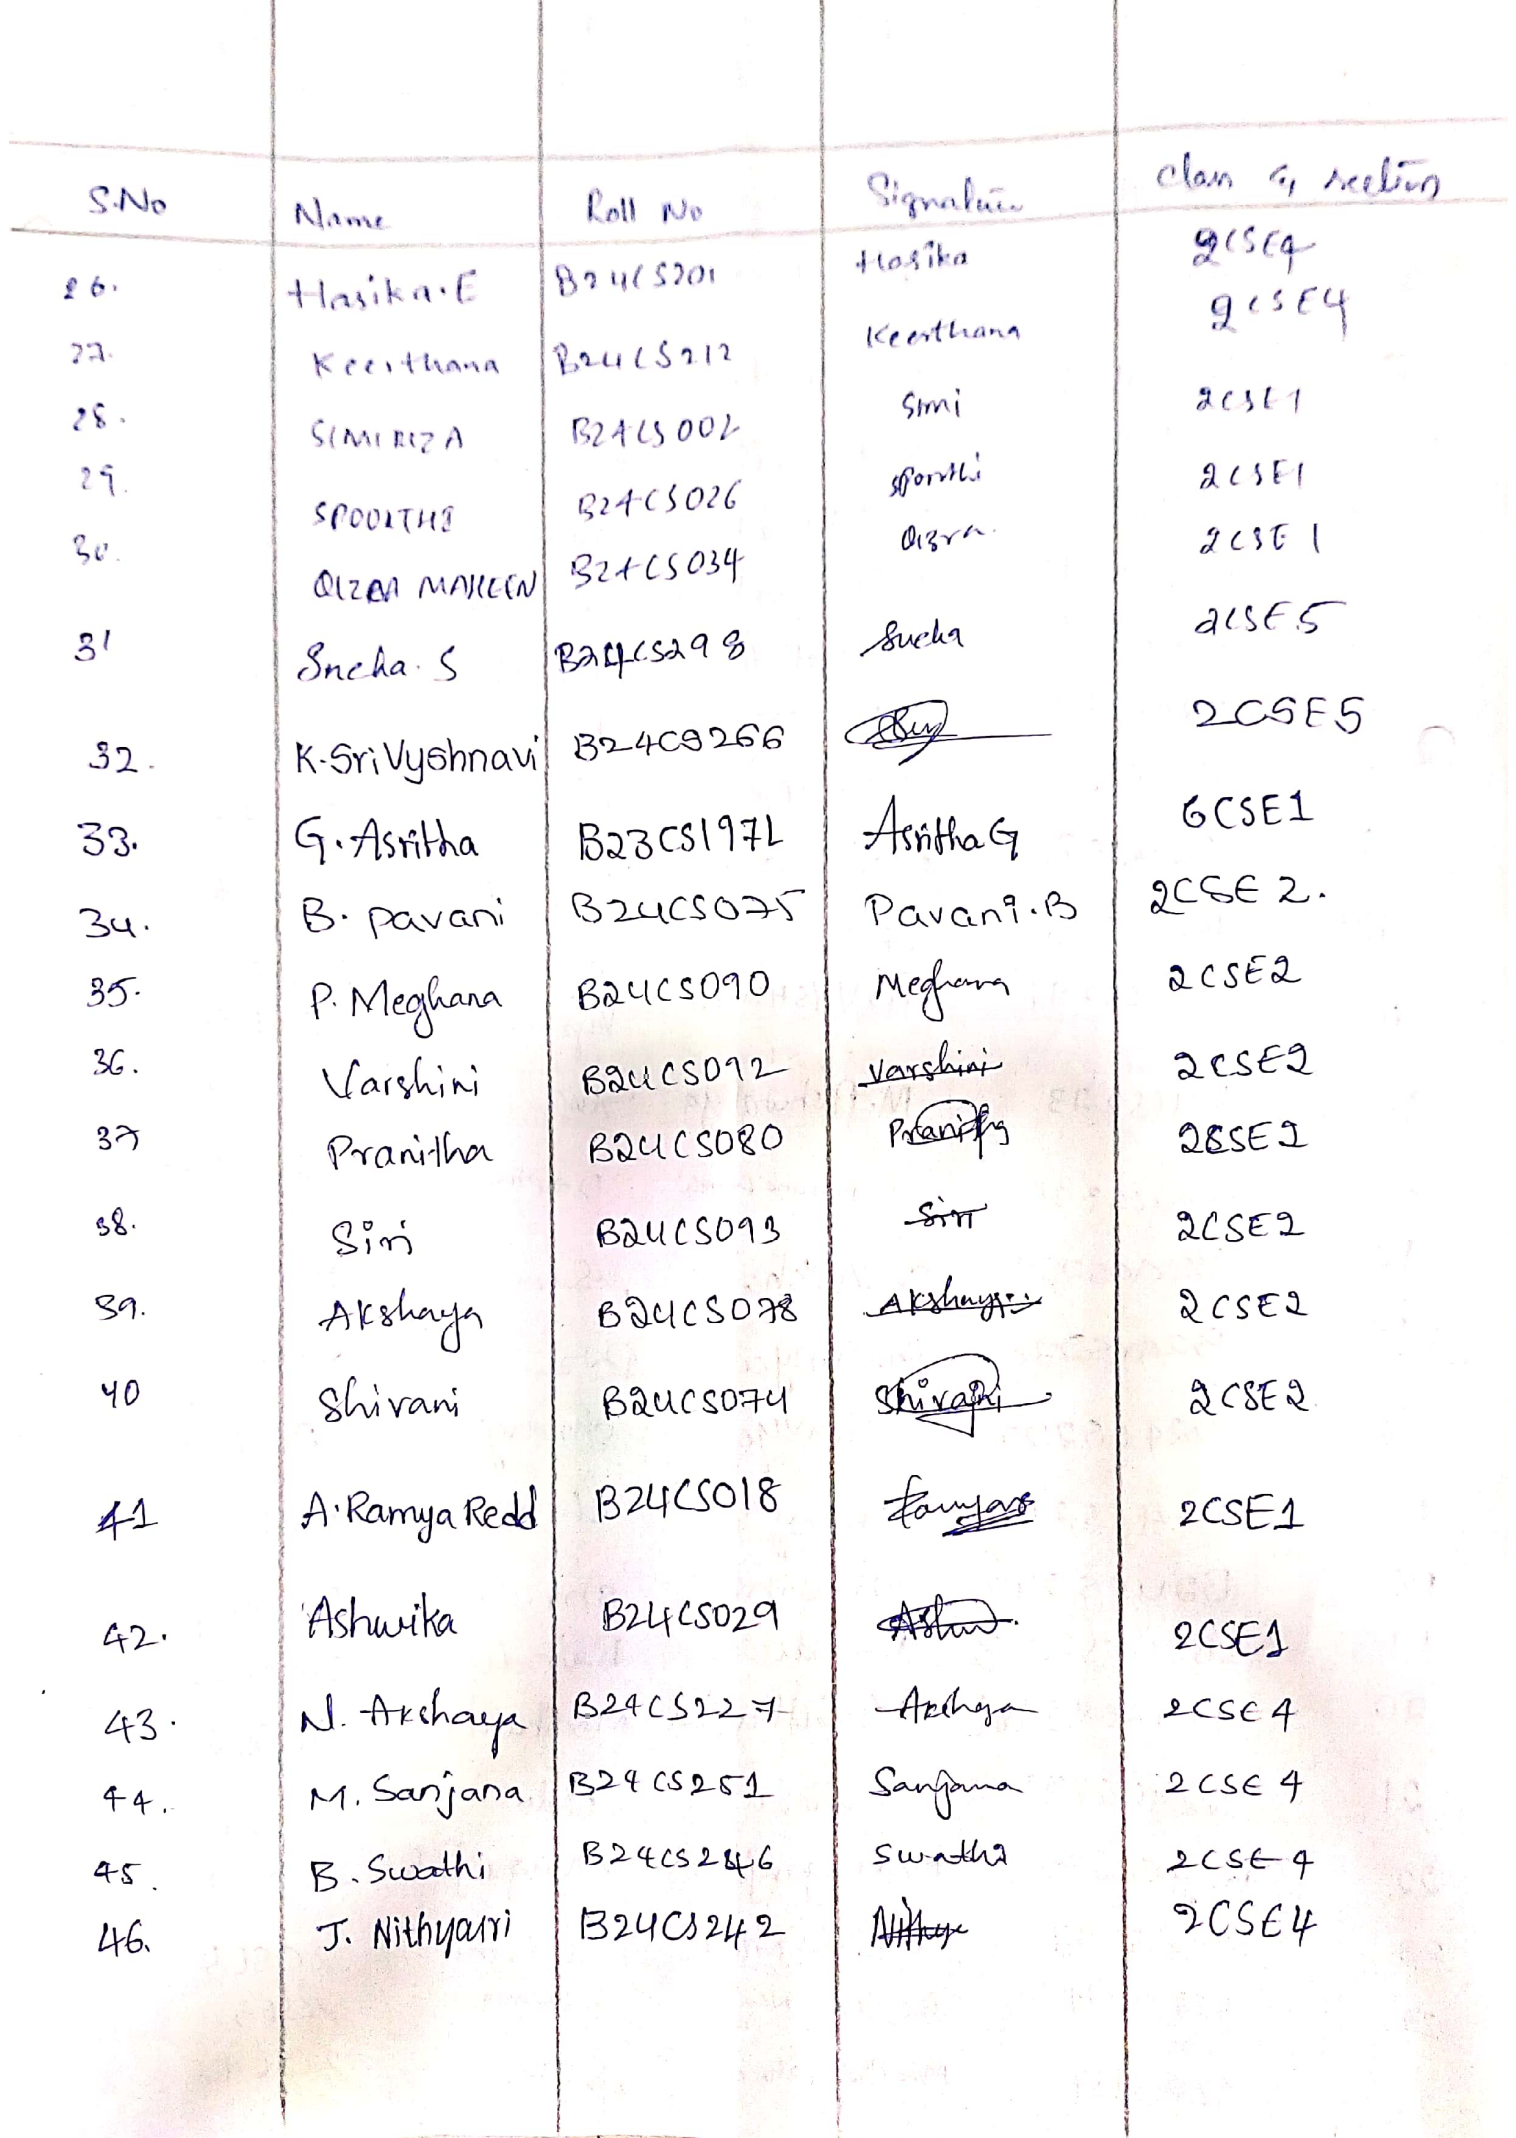 S.No Name Roll No Signature Class & section
26. Hasika.E B24CS201 Hasika 2CSE4
27. Keerthana B24CS212 Keerthana 2CSE4
28. SIMI RIZA B24CS002 Simi 2CSE1
29. SPOORTHI B24CS026 Spoorthi 2CSE1
30. QIZRA MAHEEN B24CS034 Qizra 2CSE1
31 Sneha.S B24CS298 Sneha 2CSE5
32. K.Sri Vyshnavi B24CS266 2CSE5
33. G.Asritha B23CS197L Asritha G 6CSE1
34. B. pavani B24CS075 Pavani.B 2CSE2.
35. P. Meghana B24CS090 Meghana 2CSE2
36. Varshini B24CS092 Varshini 2CSE2
37 Pranitha B24CS080 Pranitha 2CSE2
38. Siri B24CS093 Siri 2CSE2
39. Akshaya B24CS078 Akshaya 2CSE2
40 Shivani B24CS074 Shivani 2CSE2
41 A.Ramya Redd B24CS018 Ramya 2CSE1
42. Ashwika B24CS029 Ashw 2CSE1
43. N. Akshaya B24CS227 Akshaya 2CSE4
44. M. Sanjana B24CS251 Sanjana 2CSE4
45. B. Swathi B24CS246 Swathi 2CSE4
46. J. Nithyasri B24CS242 Nithya 2CSE4